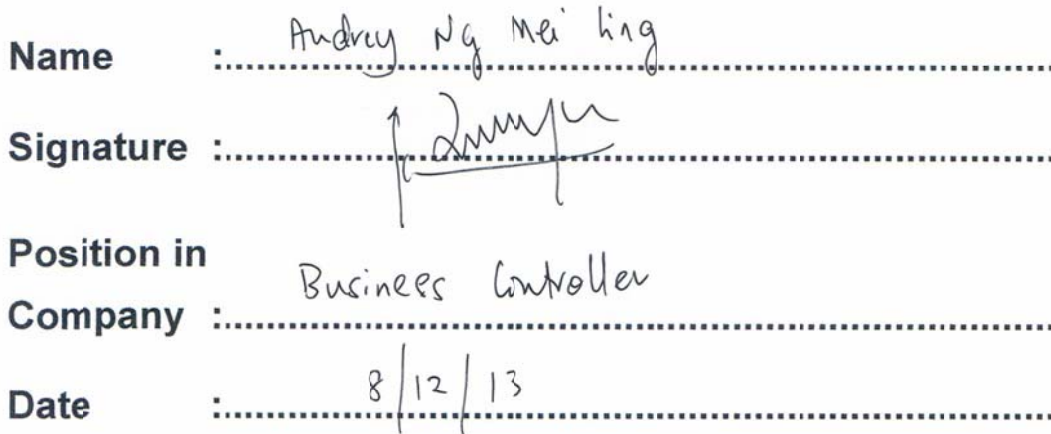 Name : Audrey Ng Mei Ling
Signature :
Position in
Company : Business Controller
Date : 8/12/13